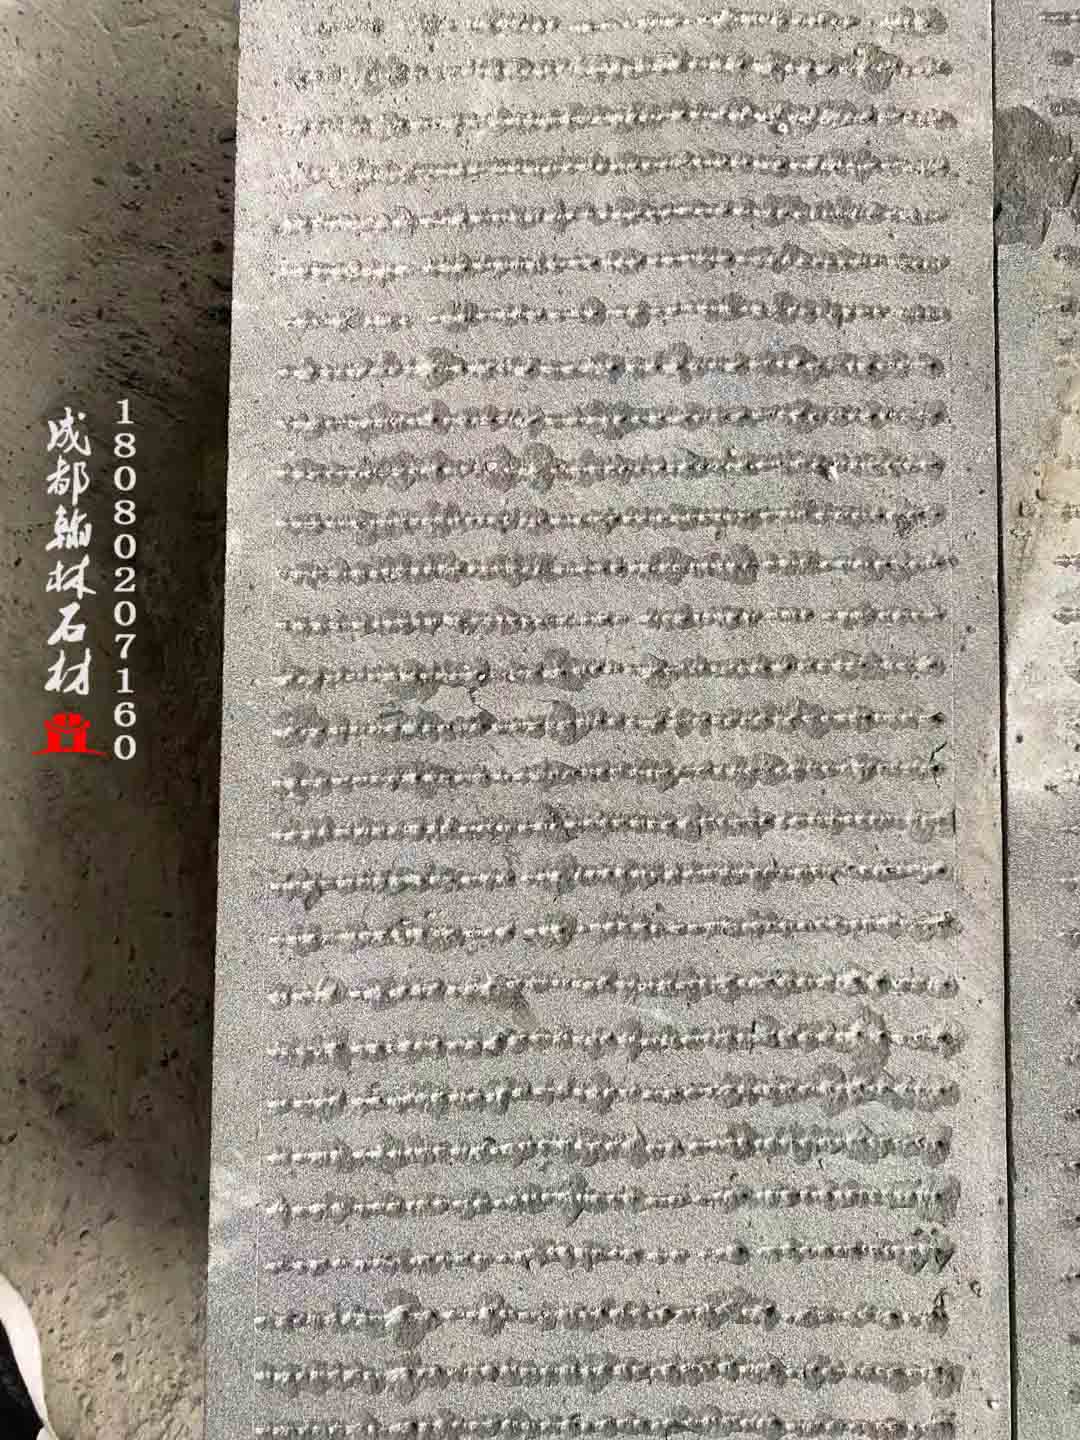 18080207160
成都翰林石材